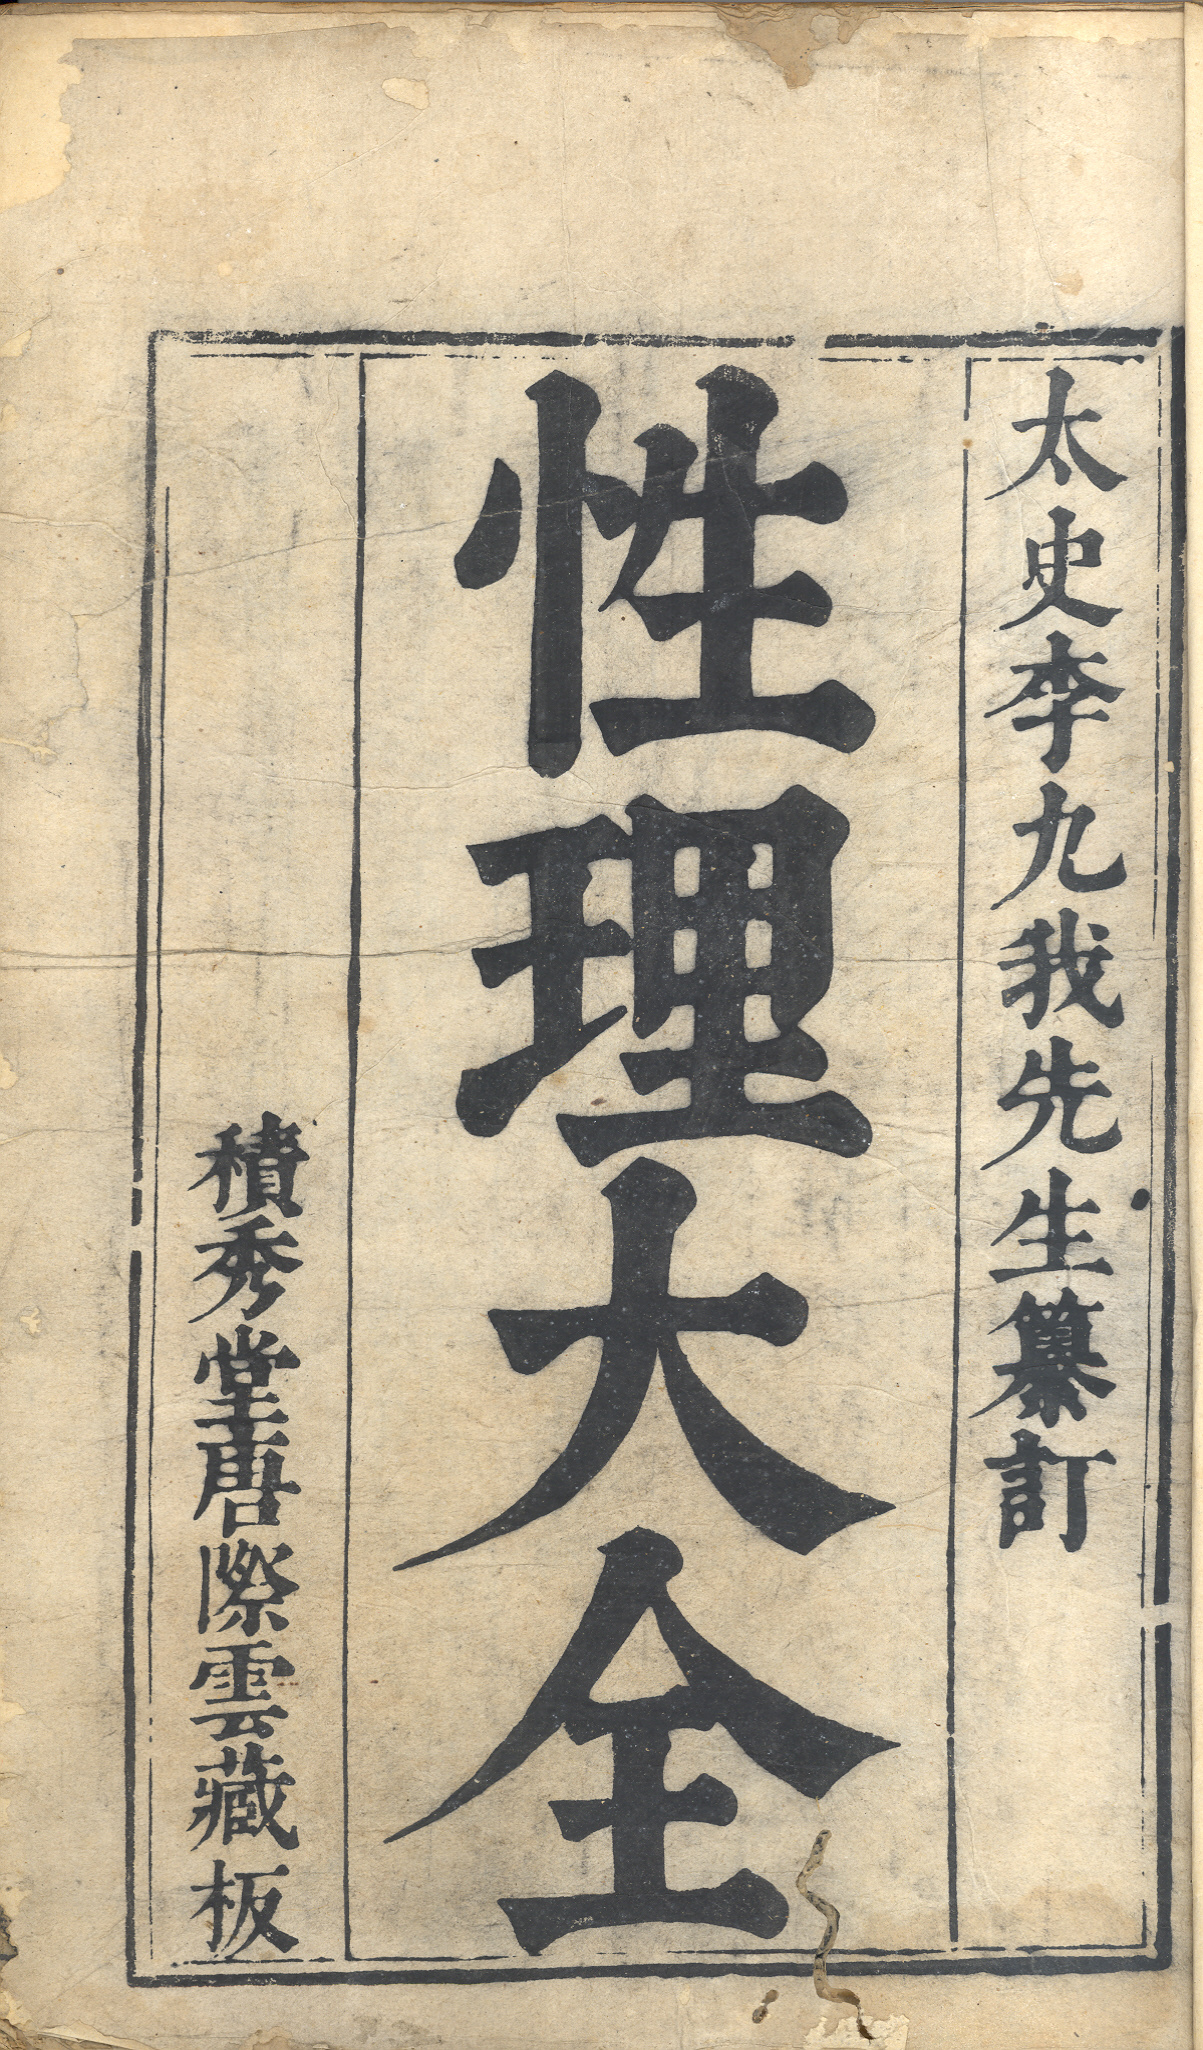 太史李九我先生纂訂
性理大全
積秀堂唐際雲藏板